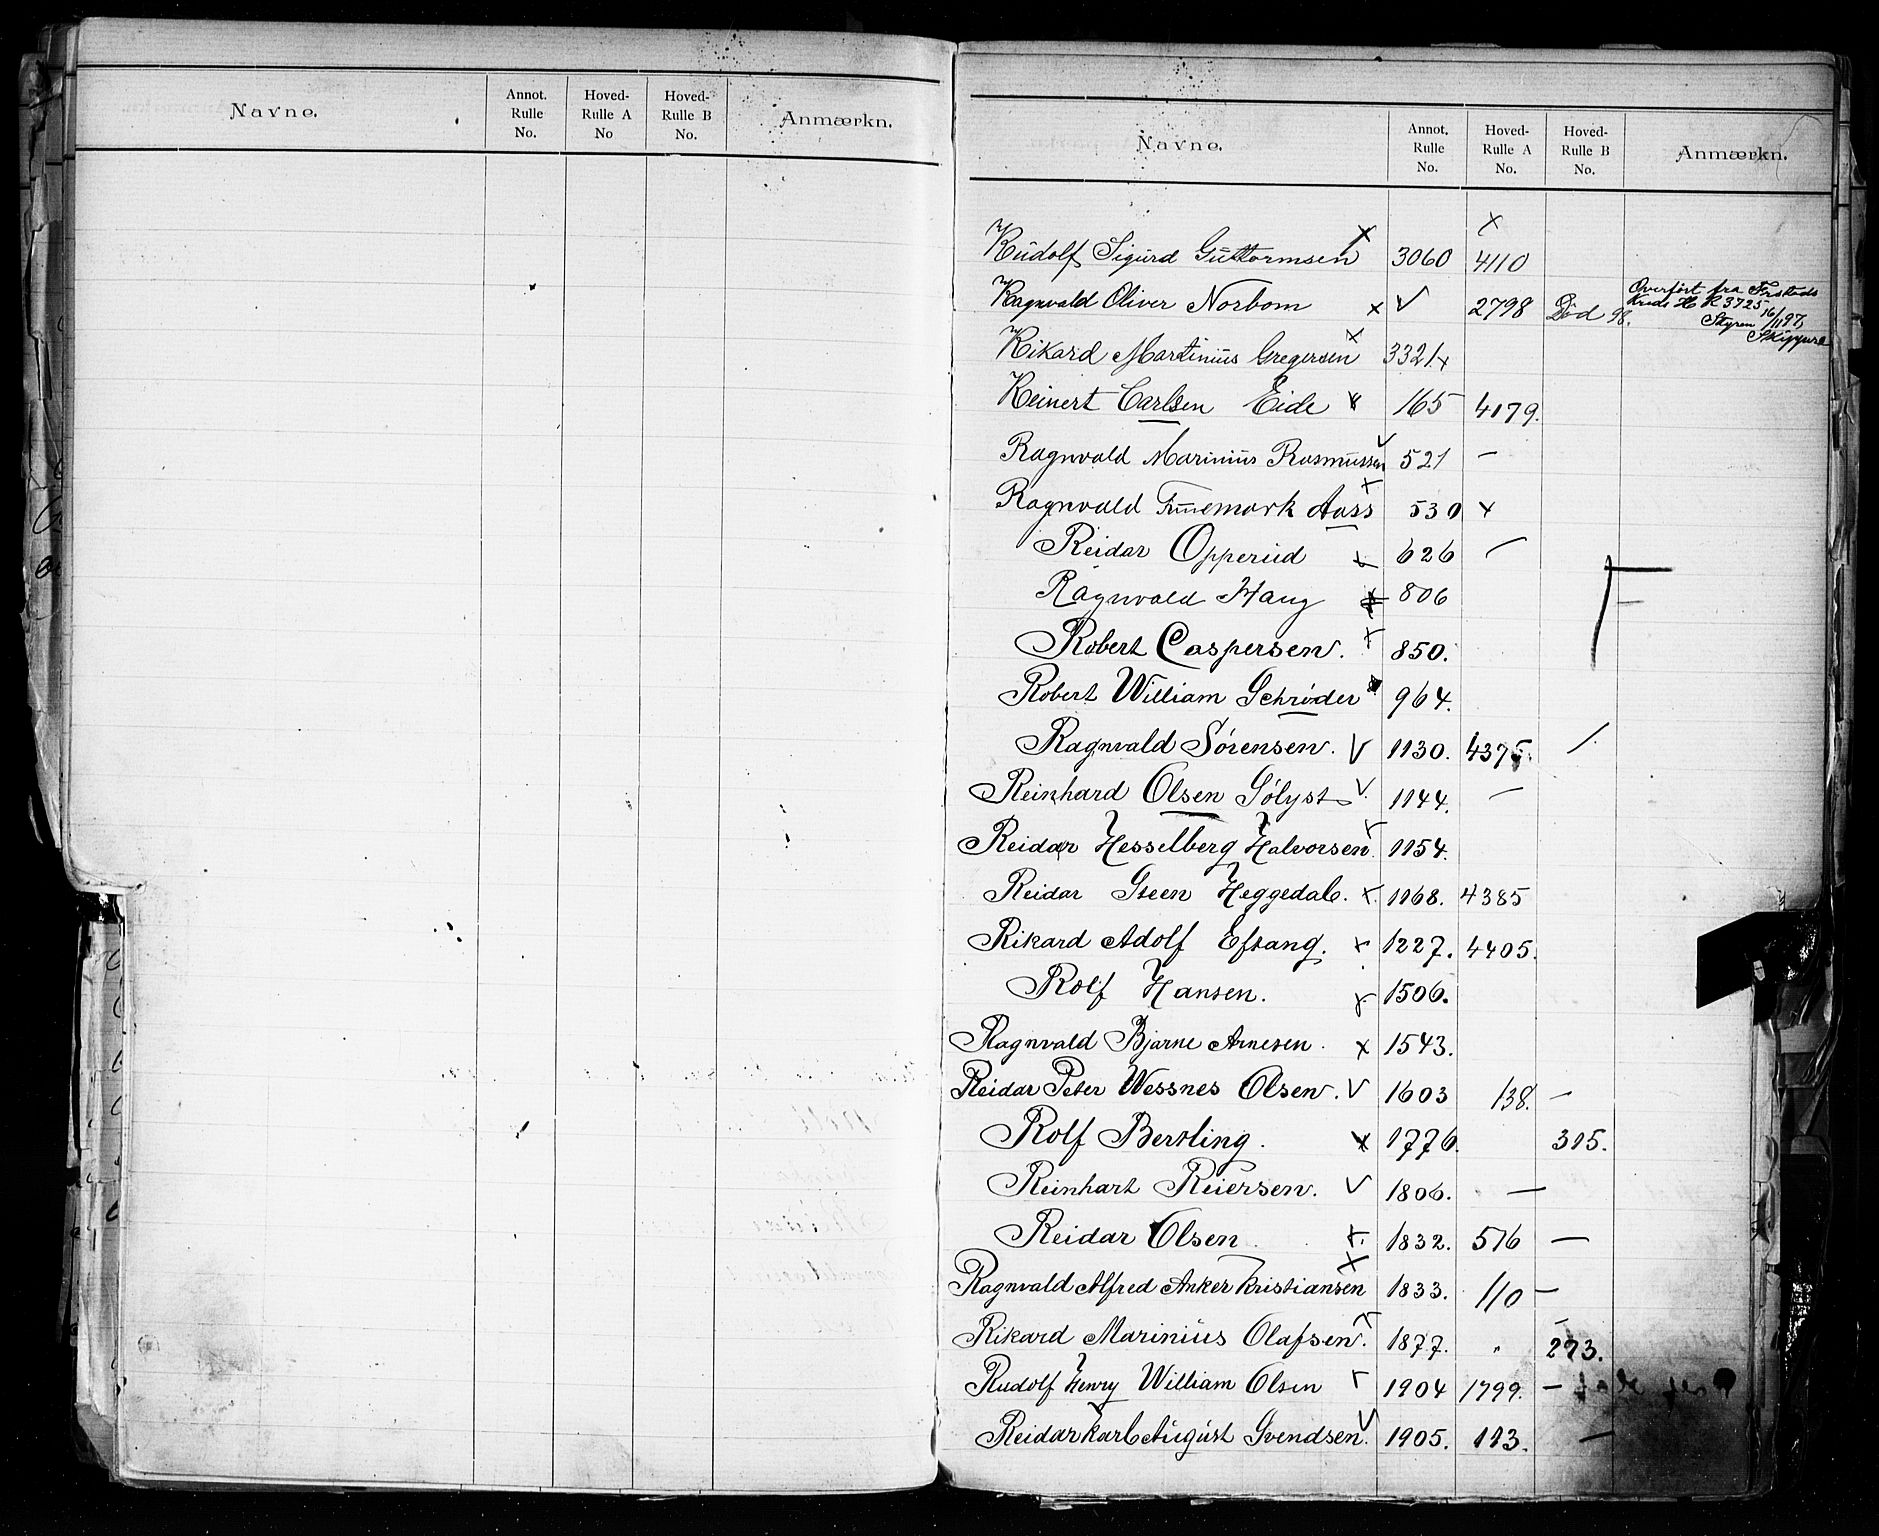 Navne. Annot. Rulle No. Hoved-Rulle A No Hoved-Rulle B No. Anmærkn.
Navne. Annot. Rulle No. Hoved-Rulle A No. Hoved-Rulle B No. Anmærkn.
x
Rudolf Sigurd Guttormsen x 3060 4110
Ragnvald Oliver Norbom x v 2798 Död 98. Overført fra Fr.stads
Kreds H R 3725 16/11 97
Styrm
Skippere
Rikard Martinius Gregersen x 3321 x
Reinert Carlsen Eide x 165 4179.
Ragnvald Marinius Rasmussen v 521 —
Ragnvald Aass x 530 x
Reidar Opperud 626 —
Ragnvald Haug x 806
F
Robert Caspersen. x 850.
Robert William Schrøder 964.
Ragnvald Sørensen. V 1130. 4375. /.
Reinhard Olsen Sølyst V. 1144. —
Reidar Hesselberg Halvorsen. 1154.
Reidar Steen Heggedal. x. 1168. 4385
Rikard Adolf Eftang. x 1227. 4405.
Rolf Hansen. x. 1506.
Ragnvald Bjarne Arnesen. x 1543.
Reidar Peter Wessnes Olsen. V 1603 138. —
Rolf Bertling. x 1776. 315.
Reinhart Reiersen. V 1806. —
Reidar Olsen. x. 1832. 516 —
Ragnvald Alfred Anker Kristiansen x 1833. 110 —
Rikard Marinius Olafsen. x 1877. " 273.
Rudolf Henry William Olsen x 1904 1799. —
Reidar Karl August Svendsen. V 1905. 113. —